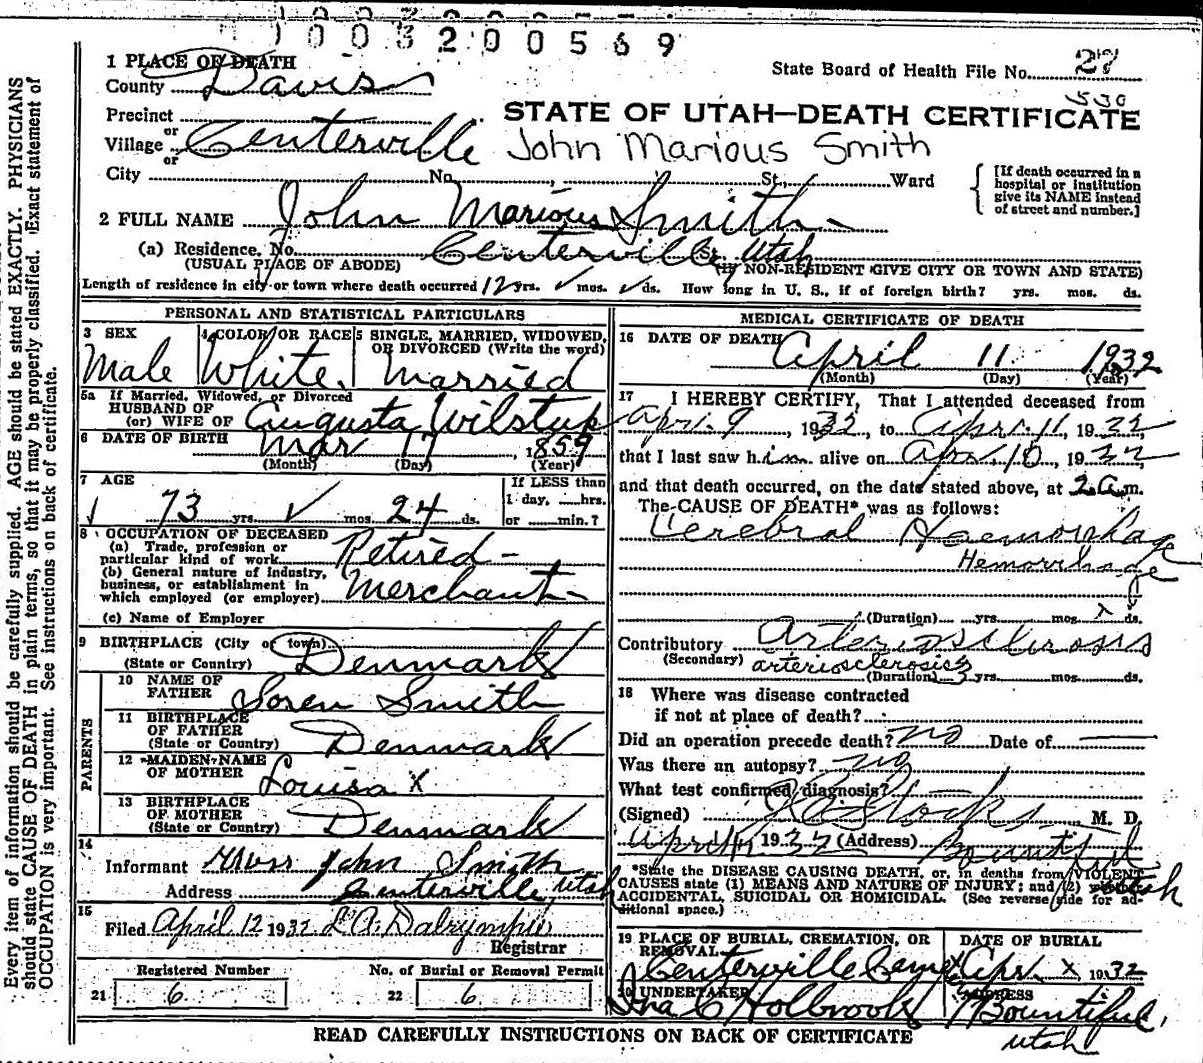 1003200569
1 PLACE OF DEATH
County Davis
State Board of Health File No. 27
530
Precinct
or
Village Centerville
or
STATE OF UTAH—DEATH CERTIFICATE
John Marious Smith
City No. , St., Ward
[If death occurred in a
hospital or institution
give its NAME instead
of street and number.]
2 FULL NAME John Marious Smith
(a) Residence. No. Centerville St. Utah
(USUAL PLACE OF ABODE) (IF NON-RESIDENT GIVE CITY OR TOWN AND STATE)
Length of residence in city or town where death occurred 12 yrs. ✓ mos. ✓ ds. How long in U. S., if of foreign birth? yrs. mos. ds.
PERSONAL AND STATISTICAL PARTICULARS
3 SEX
Male
4 COLOR OR RACE
White
5 SINGLE, MARRIED, WIDOWED,
OR DIVORCED (Write the word)
Married
5a If Married, Widowed, or Divorced
HUSBAND OF
(or) WIFE OF Augusta Wilstup
6 DATE OF BIRTH
Mar 17, 1859
(Month) (Day) (Year)
7 AGE
73 yrs. ✓ mos. 24 ds.
If LESS than
1 day, hrs.
or min.?
8 OCCUPATION OF DECEASED
(a) Trade, profession or
particular kind of work Retired
(b) General nature of industry,
business, or establishment in
which employed (or employer) Merchant
(c) Name of Employer
9 BIRTHPLACE (City or town)
(State or Country) Denmark
PARENTS
10 NAME OF
FATHER Soren Smith
11 BIRTHPLACE
OF FATHER
(State or Country) Denmark
12 MAIDEN NAME
OF MOTHER Louisa X
13 BIRTHPLACE
OF MOTHER
(State or Country) Denmark
14
Informant Mrs John Smith
Address Centerville Utah
15
Filed April 12 1932 L.A. Dalrymple
Registrar
Registered Number
21 6
No. of Burial or Removal Permit
22 6
MEDICAL CERTIFICATE OF DEATH
16 DATE OF DEATH
April 11 1932
(Month) (Day) (Year)
17 I HEREBY CERTIFY, That I attended deceased from
Apr. 9, 1932, to Apr. 11, 1932
that I last saw him alive on Apr. 10, 1932
and that death occurred, on the date stated above, at 2 a.m.
The CAUSE OF DEATH* was as follows:
Cerebral Haemorhage
Hemorrhage
(Duration) yrs. mos. ds.
Contributory Arteriosclerosis
(Secondary) arteriosclerosis
(Duration) 3 yrs. mos. ds.
18 Where was disease contracted
if not at place of death?
Did an operation precede death? no Date of
Was there an autopsy? no
What test confirmed diagnosis?
(Signed) Stocks M. D.
April 11 1932 (Address) Bountiful
Utah
*State the DISEASE CAUSING DEATH, or, in deaths from VIOLENT
CAUSES state (1) MEANS AND NATURE OF INJURY; and (2) whether
ACCIDENTAL, SUICIDAL OR HOMICIDAL. (See reverse side for ad-
ditional space.)
19 PLACE OF BURIAL, CREMATION, OR
REMOVAL
Centerville
DATE OF BURIAL
Apr. X, 1932
20 UNDERTAKER
Ira C Holbrook
ADDRESS
Bountiful,
Utah
READ CAREFULLY INSTRUCTIONS ON BACK OF CERTIFICATE
Every item of information should be carefully supplied. AGE should be stated EXACTLY. PHYSICIANS
should state CAUSE OF DEATH in plain terms, so that it may be properly classified. Exact statement of
OCCUPATION is very important. See instructions on back of certificate.